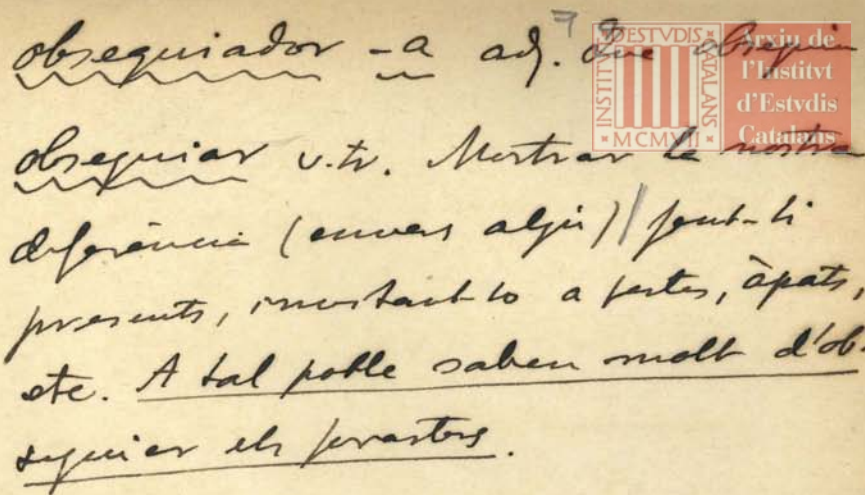 obsequiador -a adj. Que obsequia
obsequiar v.tr. Mostrar la nostra
deferència (envers algú) fent-li
presents, invitant-lo a festes, àpats,
etc. A tal poble saben molt d'ob-
sequiar els forasters.
INSTITVT D'ESTVDIS CATALANS
MCMVII
Arxiu de
l'Institvt
d'Estvdis
Catalans